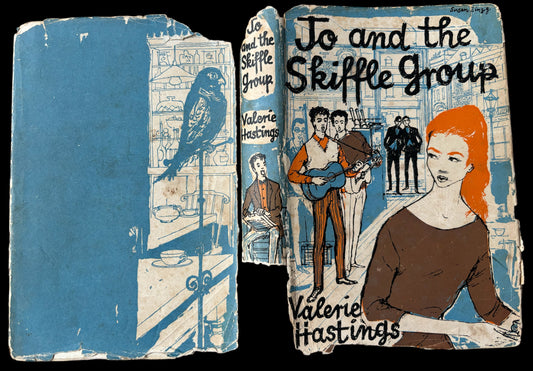 Jo
and the
Skiffle
Group
Valerie
Hastings
Susan Einzig
Jo and the
Skiffle Group
Valerie
Hastings